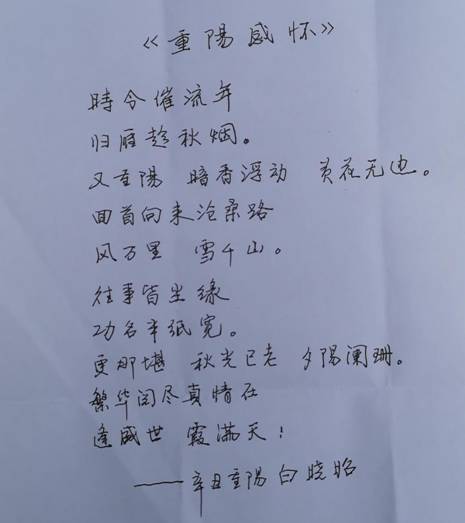 《重陽感怀》
時令催流年
归雁趁秋烟。
又重陽 暗香浮动 黄花无边。
回首向来沧桑路
风万里 雪千山。
往事皆尘缘
功名半纸宽。
更那堪 秋光已老 夕陽阑珊。
繁华阅尽真情在
逢盛世 霞满天!
——辛丑重陽 白晓昭